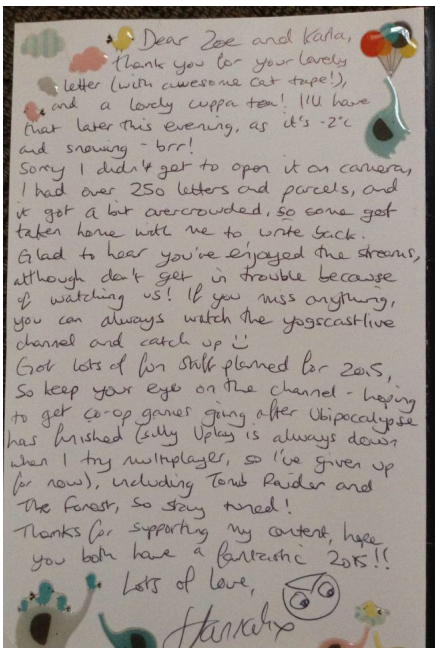 Dear Zoe and Karla,
thank you for your lovely
letter (with awesome cat tape!),
and a lovely cuppa tea! I'll have
that later this evening, as it's -2°c
and snowing - brr!
Sorry I didn't get to open it on camera,
I had over 250 letters and parcels, and
it got a bit overcrowded, so some got
taken home with me to write back.
Glad to hear you've enjoyed the streams,
although don't get in trouble because
of watching us! If you miss anything,
you can always watch the yogscastlive
channel and catch up
Got lots of fun stuff planned for 2015,
so keep your eye on the channel - hoping
to get co-op games going after Ubipocalypse
has finished (silly Uplay is always down
when I try multiplayer, so I've given up
for now), including Tomb Raider and
The Forest, so stay tuned!
Thanks for supporting my content, hope
you both have a fantastic 2015!!
Lots of love,
Hannah x